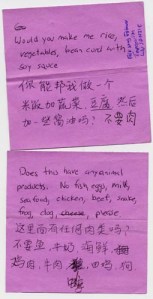 Go
Would you make me rice,
vegetables, bean curd with
soy sauce
你能帮我做一个
米饭加蔬菜、豆腐然后
加一些酱油吗？不要肉
Does this have any animal
products. No fish, eggs, milk,
seafood, chicken, beef, snake,
frog, dog, cheese, please
这里面有任何肉类吗？
不要鱼、牛奶、海鲜
鸡肉、牛肉、田鸡、狗、